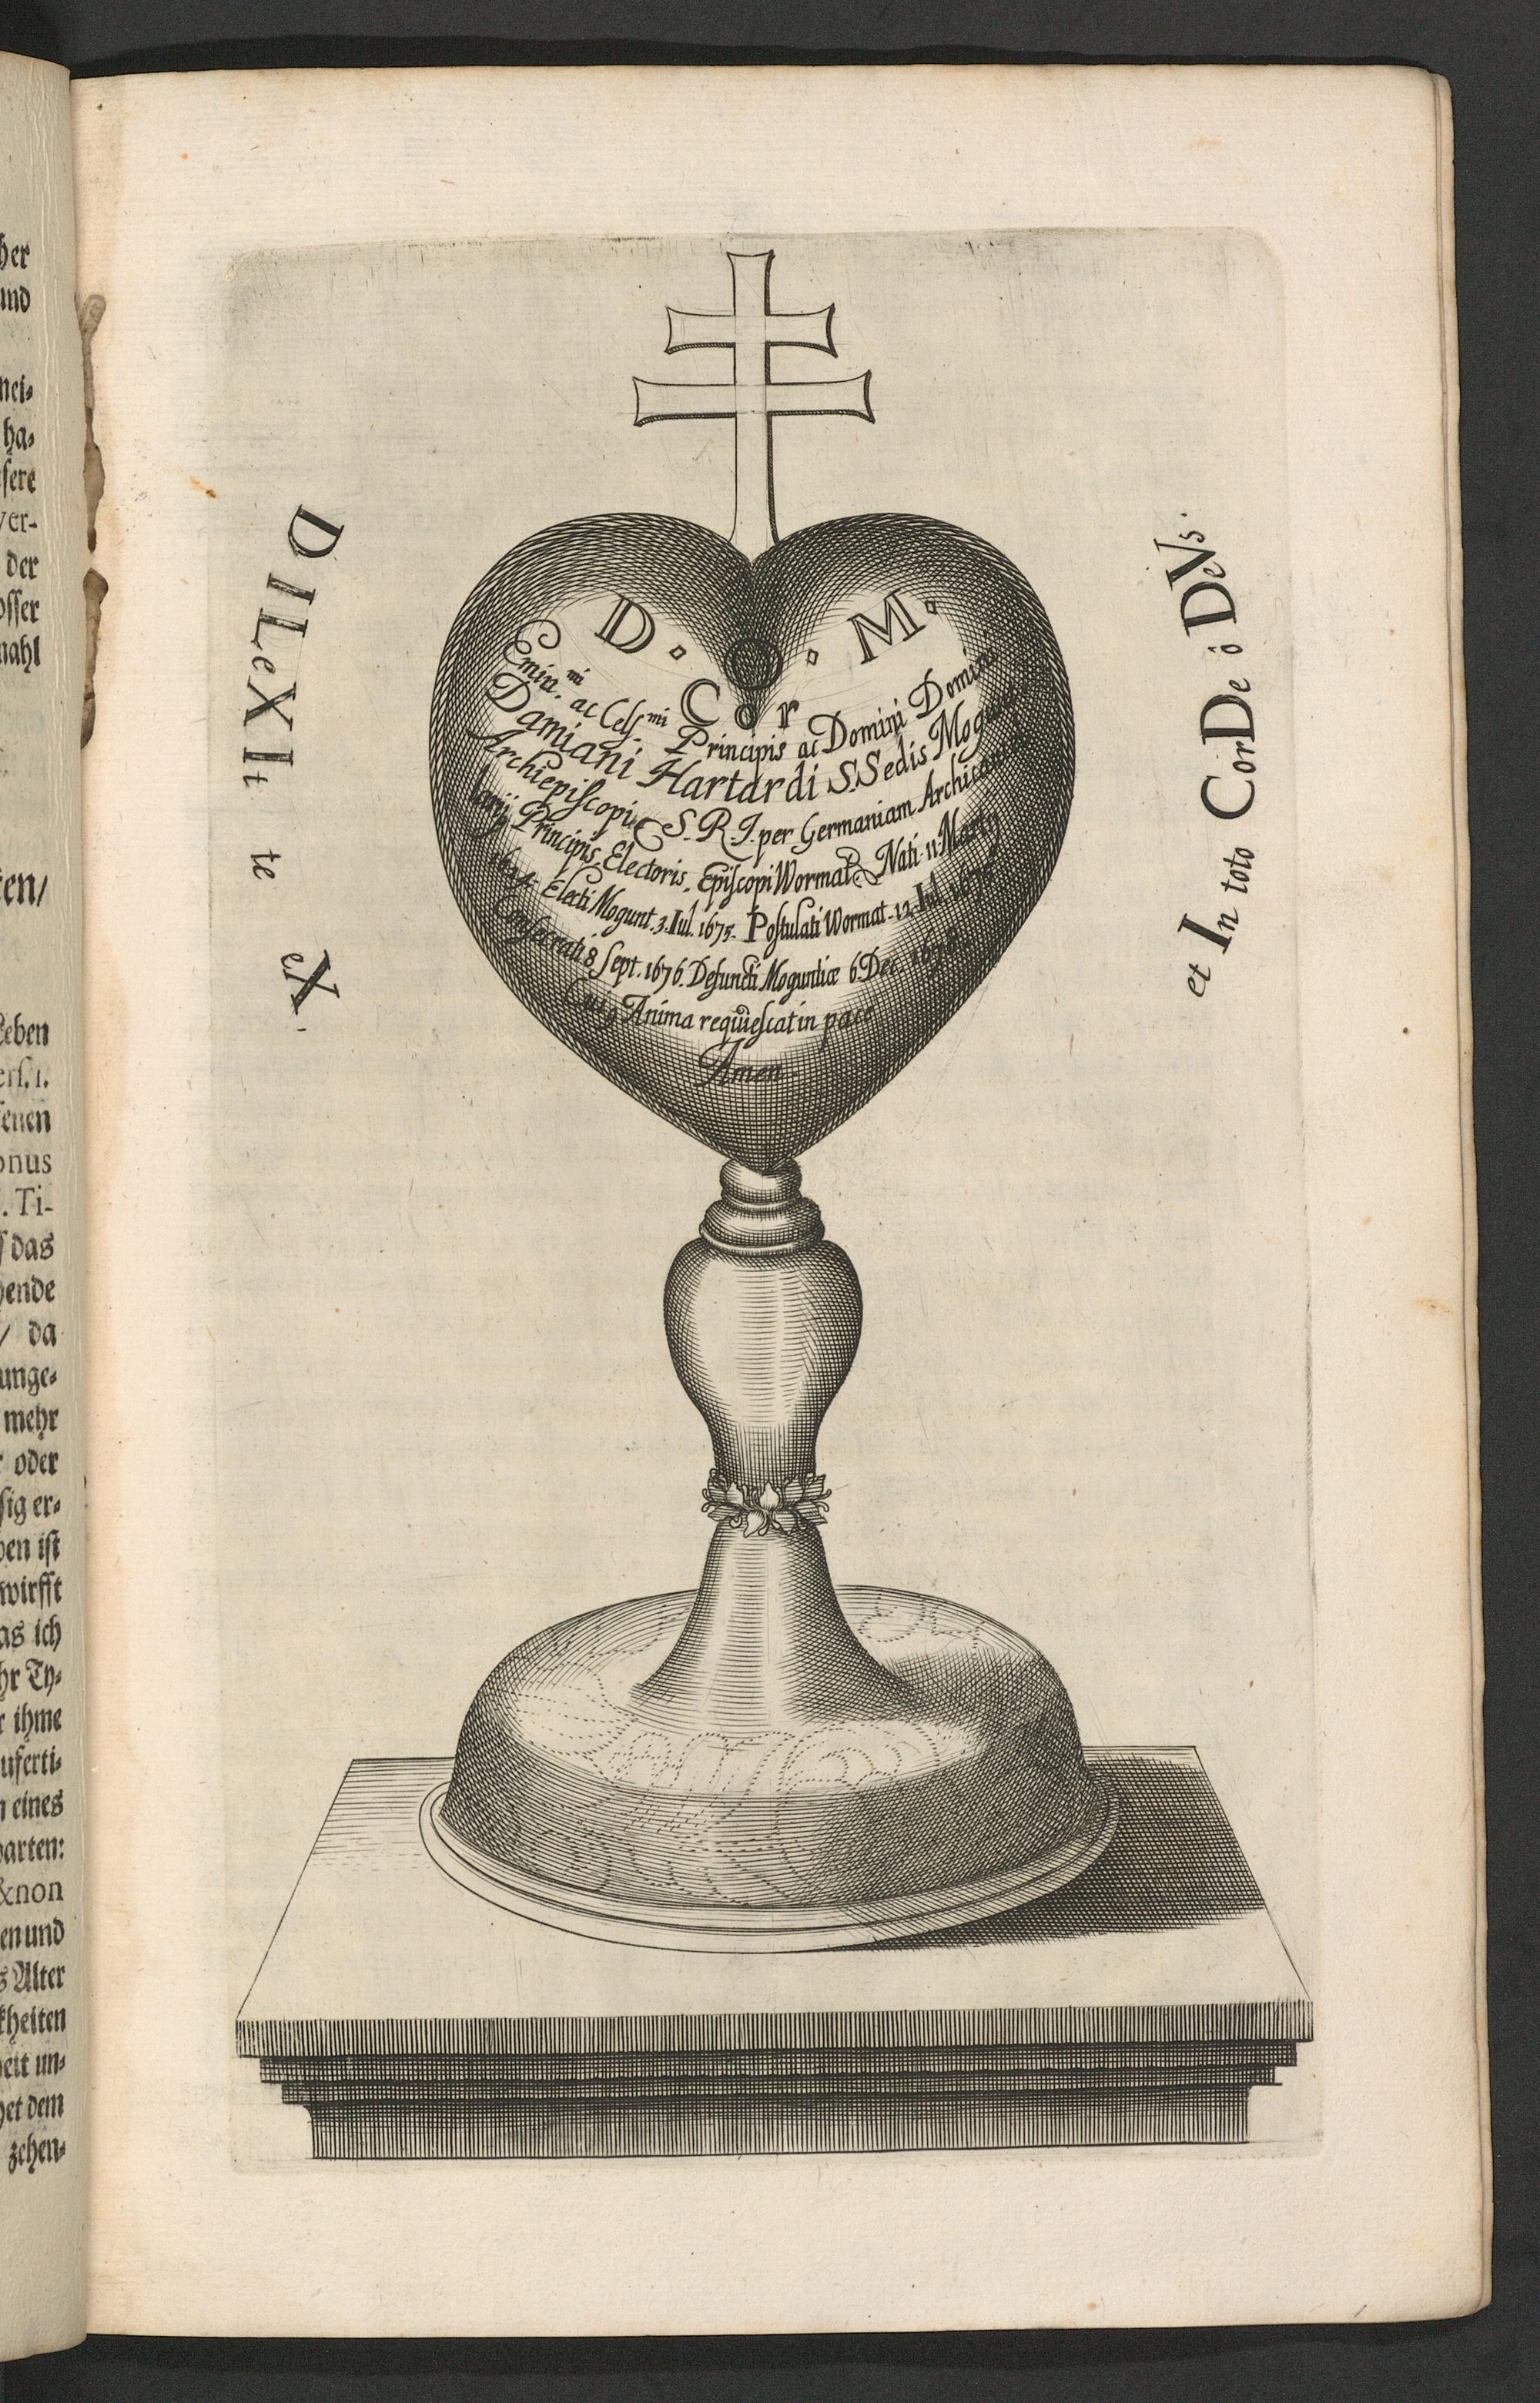 her
und
nei⸗
ha⸗
sere
ver-
der
osser
nahl
ten/
Leben
ers. 1.
senen
onus
. Ti-
das
hende
/ da
unge⸗
mehr
oder
sig er⸗
ben ist
wirfft
as ich
hr Ty⸗
r ihme
uferti⸗
n eines
arten:
&non
en und
s Alter
kheiten
heit un⸗
het dem
zehen⸗
DILeXIt te eX.
D. O. M.
Cor
Emin.mi ac Cels.mi Principis ac Domini Domini
Damiani Hartardi S. Sedis Mogunt.
Archiepiscopi, S. R. I. per Germaniam Archican-
larij, Principis Electoris, Episcopi Wormat. Nati 11. Martij
Electi Mogunt. 3. Iul. 1675. Postulati Wormat. 12. Iul. 1675.
Consecrati 8 Sept. 1676. Defuncti Moguntiæ 6. Dec. 1678.
Cuiꝰ Anima requiescat in pace
Amen.
et In toto CorDe ô DeVs.